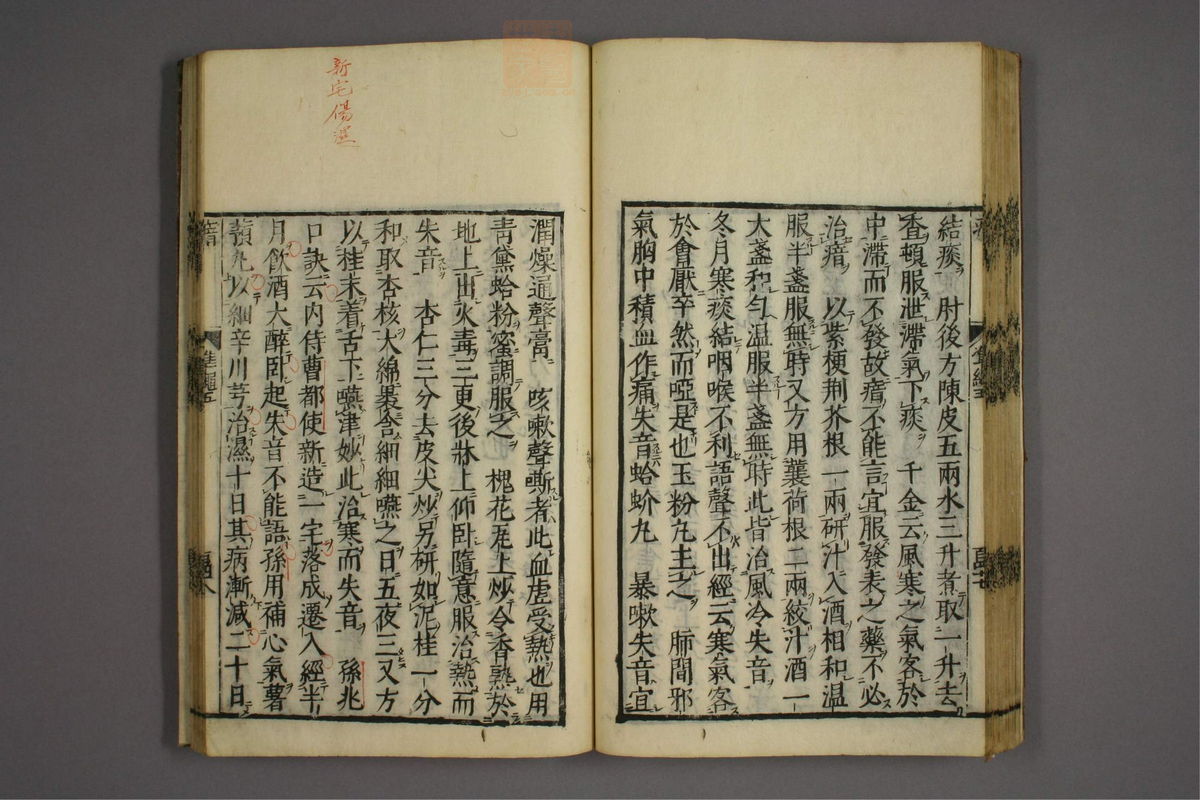 結痰 肘後方陳皮五兩水三升煮取一升去
査頓服泄滯氣下痰 千金云風寒之氣客於
中滯而不發故瘖不能言宜服發表之藥不必
治瘖 以紫梗荆芥根一兩研汁入酒相和温
服半盞服無時又方用蘘荷根二兩絞汁酒一
大盞和匀温服半盞無時此皆治風冷失音
冬月寒痰結咽喉不利語聲不出經云寒氣客
於會厭卒然而啞是也玉粉丸主之 肺間邪
氣胸中積血作痛失音蛤蚧丸 暴嗽失音宜
潤燥通聲膏 咳嗽聲嘶者此血虚受熱也用
青黛蛤粉蜜調服之 槐花瓦上炒令香熟於
地上出火毒三更後牀上仰卧隨意服治熱而
失音 杏仁三分去皮尖炒另研如泥桂一分
和取杏核大綿裹含細細嚥之日五夜三又方
以桂末着舌下嚥津妙此治寒而失音 孫兆
口訣云内侍曹都使新造一宅落成遷入經半
月飲酒大醉卧起失音不能語孫用補心氣薯
蕷丸以細辛川芎治濕十日其病漸減二十日
新宅傷濕